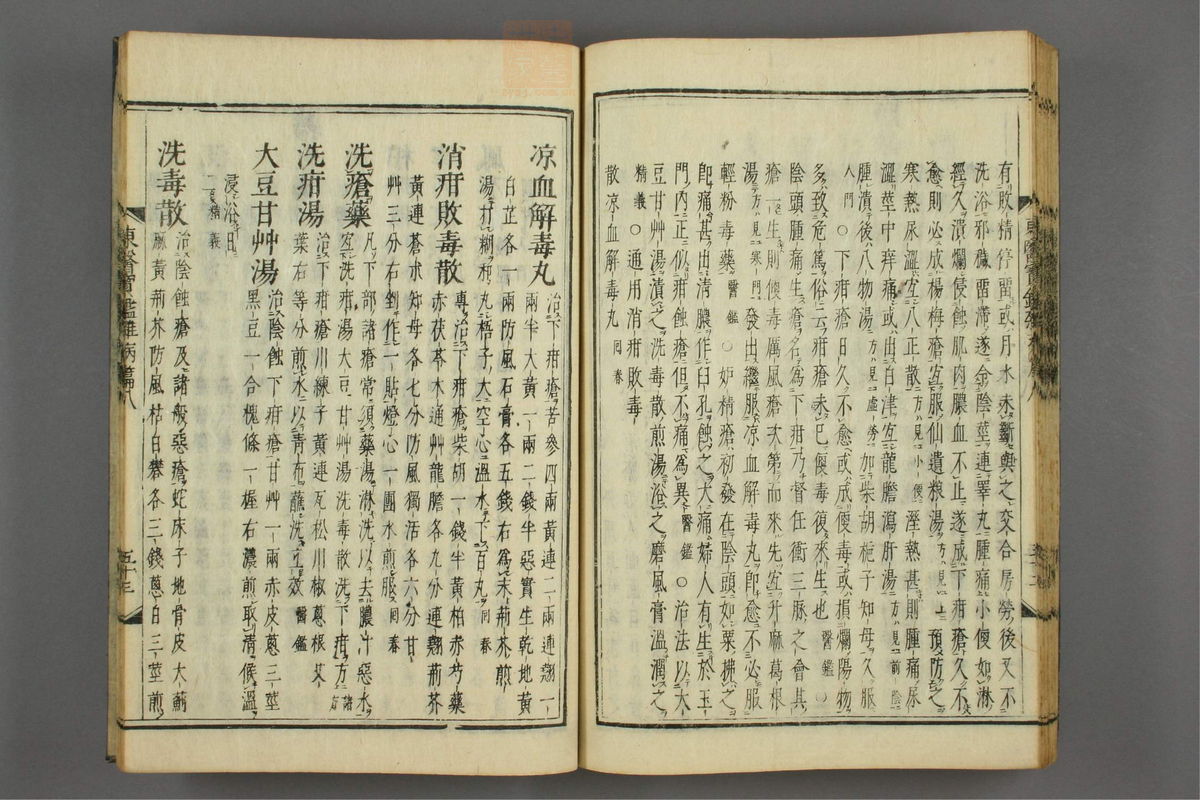 有敗精停畱或月水未斷與之交合房勞後又不
洗浴邪穢畱滯遂令陰莖連睾丸腫痛小便如淋
經久潰爛侵蝕肌肉膿血不止遂成下疳瘡久不
愈則必成楊梅瘡宜服仙遺粮湯方見上預防之
寒熱尿澁宜八正散方見小便溼熱甚則腫痛尿
澁莖中痒痛或出白津宜龍膽瀉肝湯方見前陰
腫潰後八物湯方見虛勞加柴胡梔子知母久服
入門○下疳瘡日久不愈或成便毒或損爛陽物
多致危篤俗云疳瘡未已便毒復來生也醫鑑○
陰頭腫痛生瘡名爲下疳乃督任衝三脉之會其
瘡一生則便毒厲風瘡次第而來先宜升麻葛根
湯方見寒門發出繼服凉血解毒丸卽愈不必服
輕粉毒藥醫鑑○妬精瘡初發在陰頭如粟拂之
卽痛甚出淸膿作臼孔蝕之大痛婦人有生於玉
門內正似疳蝕瘡但不痛爲異醫鑑○治法以大
豆甘艸湯漬之洗毒散煎湯浴之磨風膏溫潤之
精義○通用消疳敗毒
散凉血解毒丸回春
凉血解毒丸治下疳瘡苦參四兩黃連二兩連翹一
兩半大黃一兩二錢半惡實生乾地黃
白芷各一兩防風石膏各五錢右爲末荊芥煎
湯打糊和丸梧子大空心溫水下百丸回春
消疳敗毒散專治下疳瘡柴胡一錢半黃柏赤芍藥
赤茯苓木通艸龍膽各九分連翹荊芥
黃連蒼朮知母各七分防風獨活各六分甘
艸三分右剉作一貼燈心一團水煎服回春
洗瘡藥凡下部諸瘡常須藥湯淋洗以去膿汁惡水
宜洗疳湯大豆甘艸湯洗毒散洗下疳方諸方
洗疳湯治下疳瘡川練子黃連瓦松川椒蔥根艾
葉右等分煎水以靑布蘸洗立效醫鑑
大豆甘艸湯治陰蝕下疳瘡甘艸一兩赤皮蔥三莖
黑豆一合槐條一握右濃煎取淸候溫
浸浴日
二三精義
洗毒散治陰蝕瘡及諸般惡瘡蛇床子地骨皮大薊
麻黃荊芥防風枯白礬各三錢蔥白三莖煎
東醫寶鑑雜病篇八
五十三